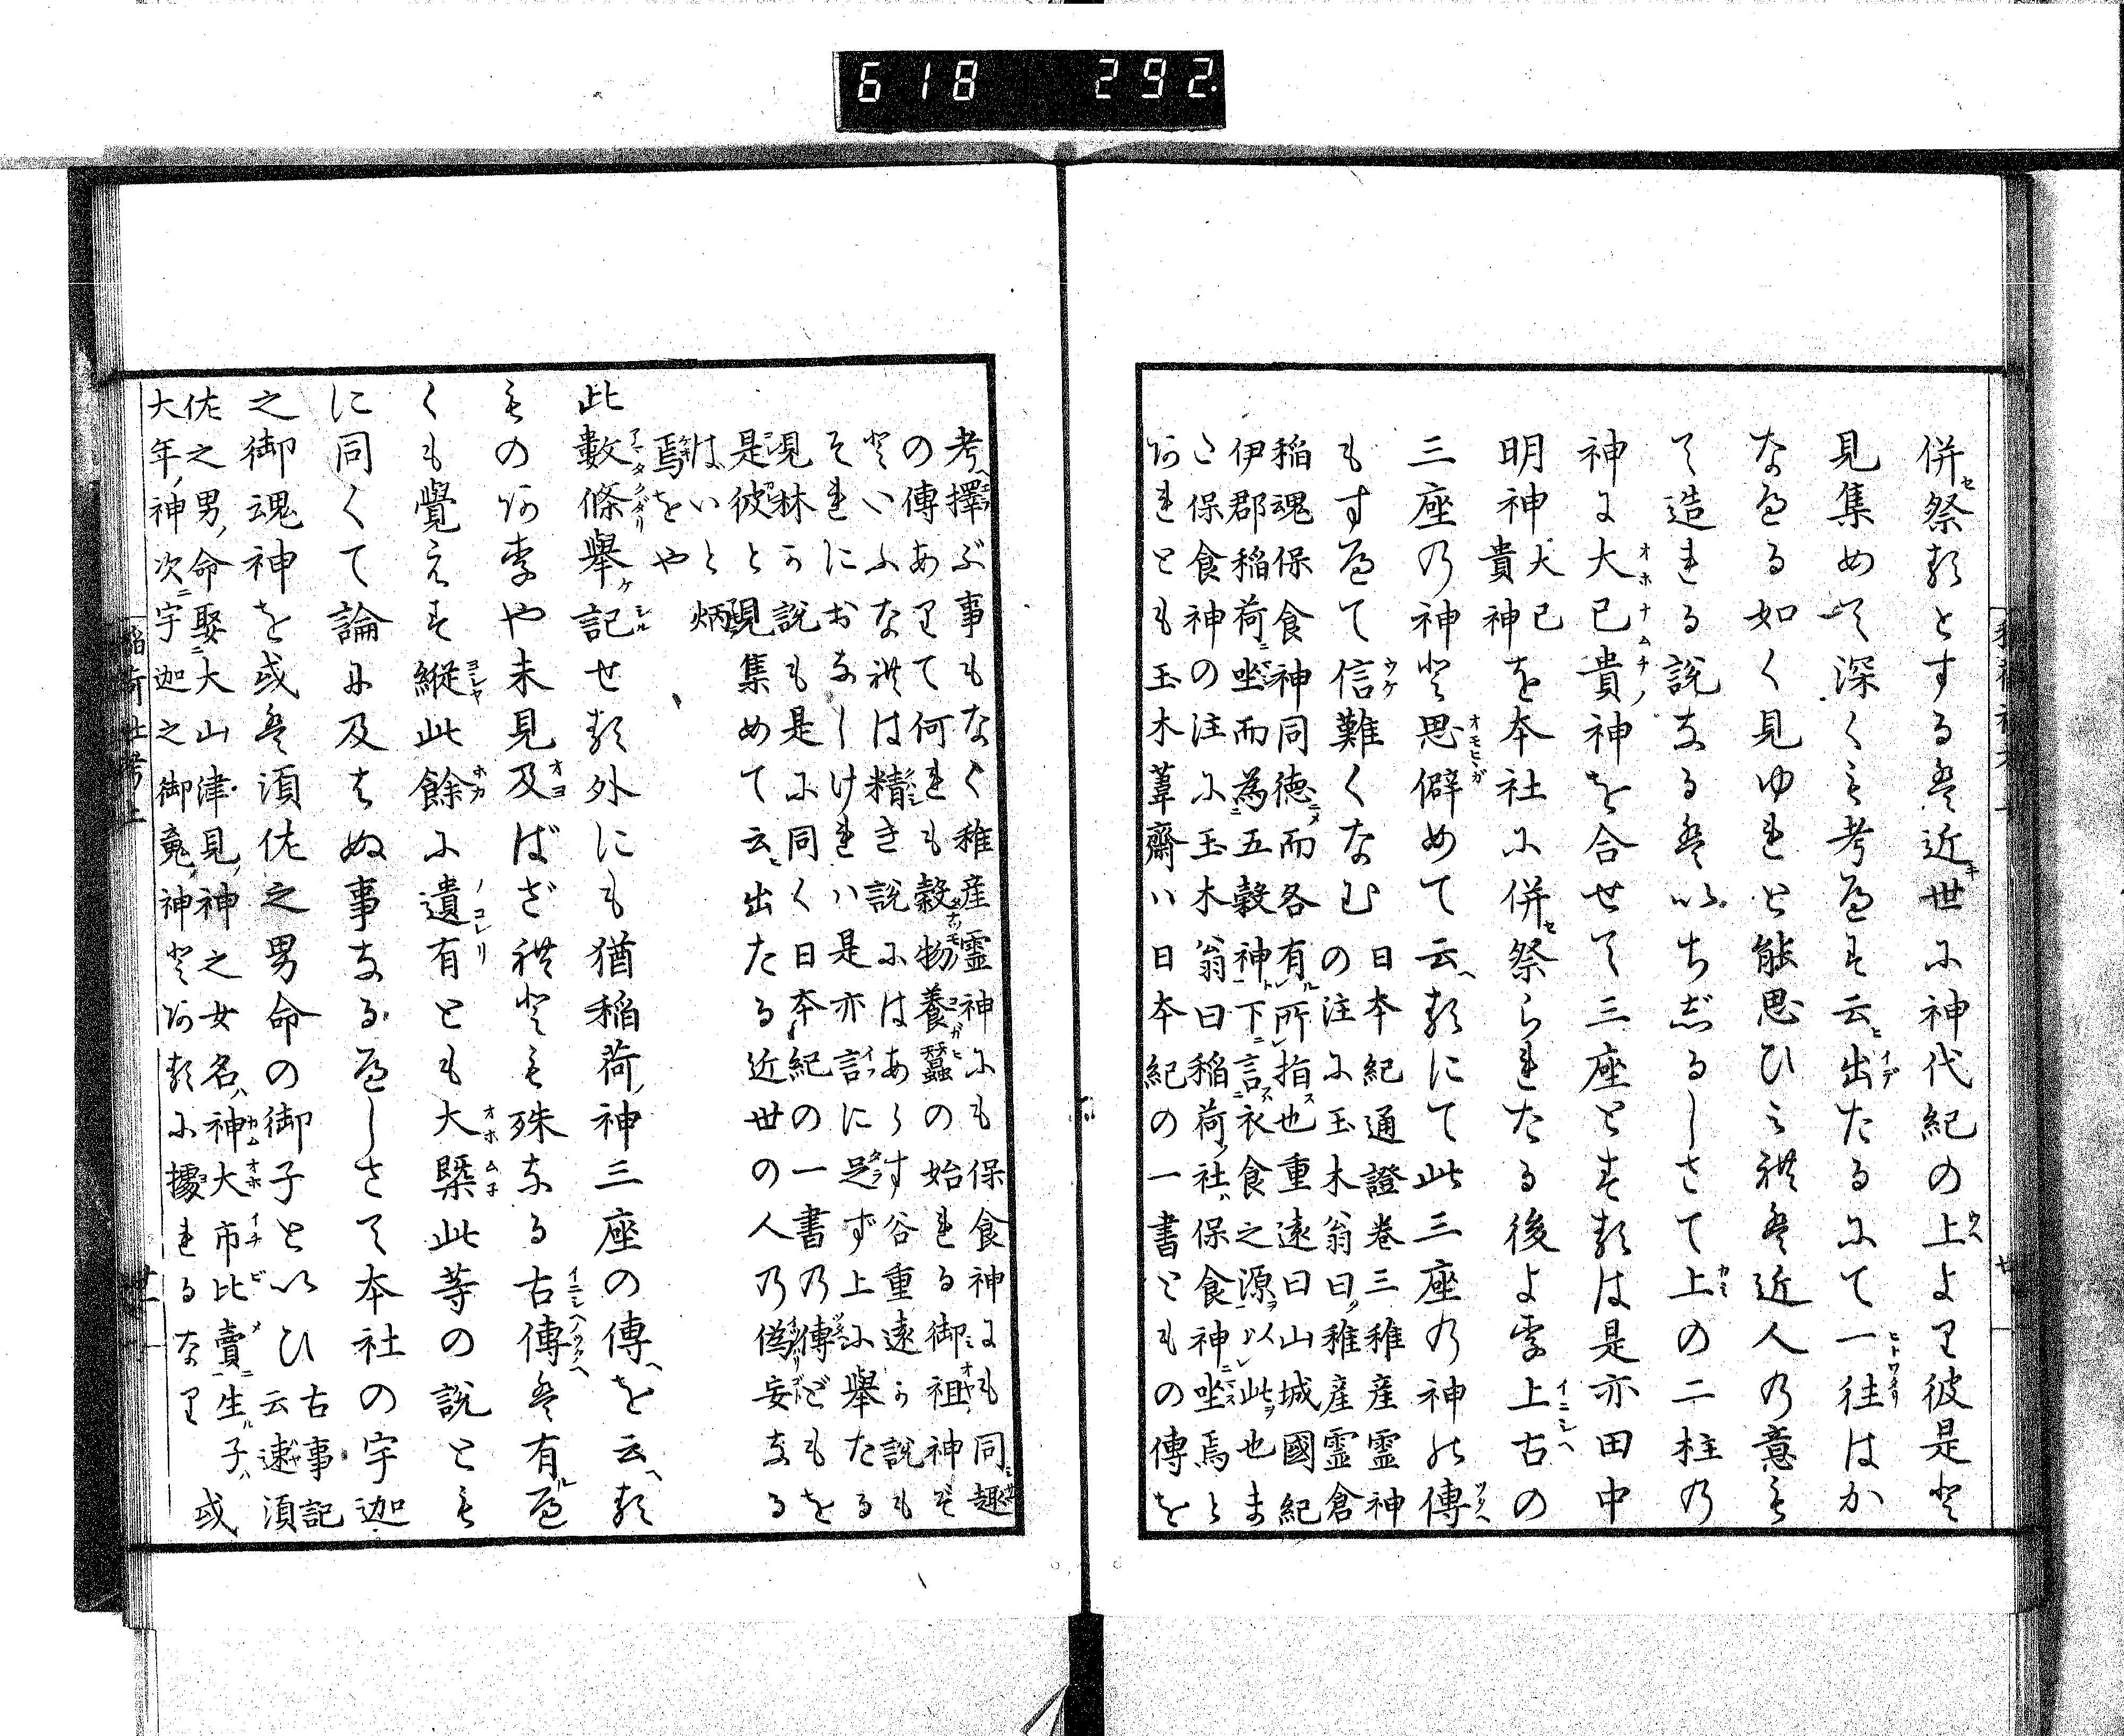 618 292
併祭れとする是近世に神代紀の上より彼是と
見集めて深くも考へす云出たるにて一往はか
なへる如く見ゆれと能思ひみれは近人乃意も
て造れる説なるはいちしるしさて上の二柱乃
神に大己貴神を合せて三座とすれは是亦田中
明神大己貴神を本社に併祭られたる後よ李上古の
三座乃神と思僻めて云れにて此三座の神の傳
もすへて信難くなむ
日本紀通證巻三稚産霊神
の注に玉木翁曰稚産霊倉
稲魂保食神同徳而各有所指也重遠曰山城國紀
伊郡稲荷坐而為五穀神下言衣食之源以此也ま
た保食神の注に玉木翁曰稲荷社保食神坐焉と
あれとも玉木葦齋ハ日本紀の一書ともの傳を
考擇ぶ事もなく稚産霊神にも保食神にも同趣
の傳ありて何れも穀物養蠶の始れる御祖神そ
といふなれは精き説にはあらす谷重遠か説も
それにおなしけれハ是亦言に足ず上に舉たる
見林か説も是に同く日本紀の一書乃傳どもを
是彼と見集めて云出たる近世の人乃偽妄なる
はいと炳
焉をや
此數條舉記せる外にも猶稲荷神三座の傳を云る
もの阿李や未見及ばざれともも殊なる古傳は有へ
くも覺えす縦此餘に遺有とも大槩此等の説とも
に同くて論に及はぬ事なるへしさて本社の宇迦
之御魂神を或は須佐之男命の御子といひ
古事記
云速須
佐之男命娶大山津見神之女名神大市比賣生子
大年神次宇迦之御魂神とあるに據れるなり
或
稲荷社考上